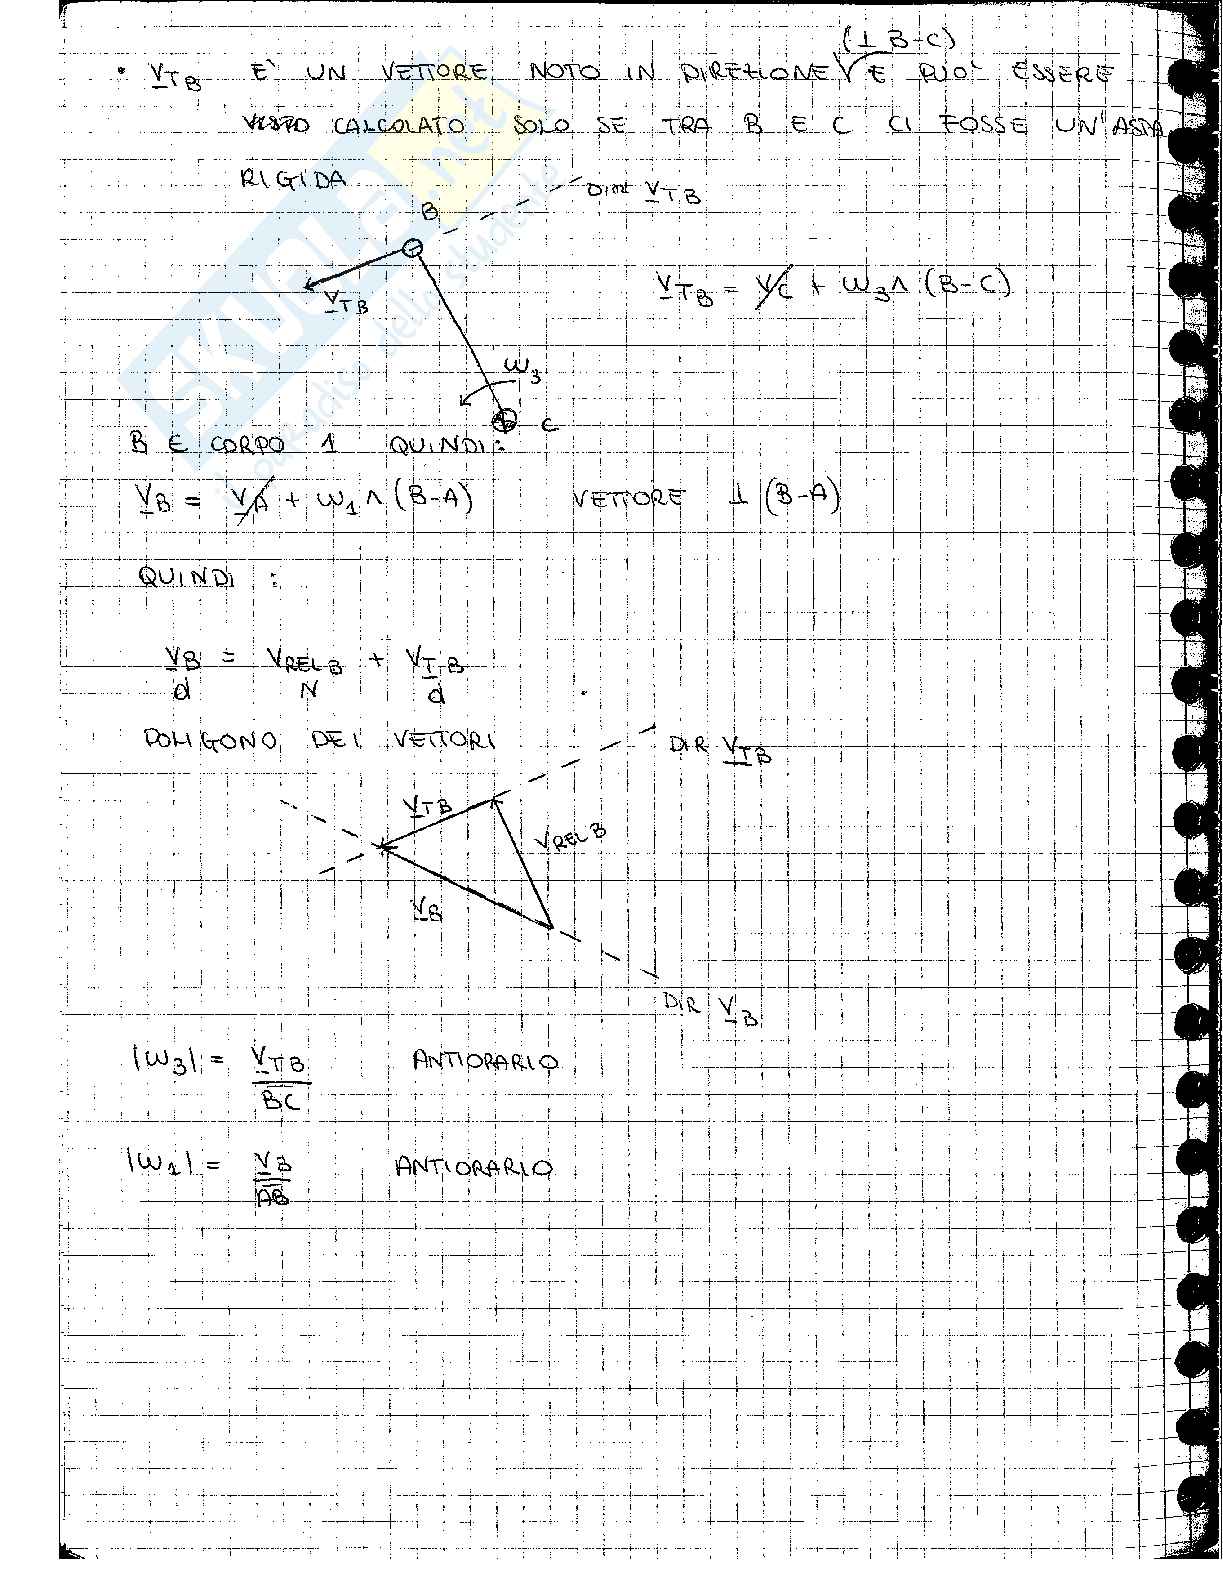 (⊥ B-C)
• V_TB E' UN VETTORE NOTO IN DIREZIONE E PUO' ESSERE
CALCOLATO SOLO SE TRA B E C CI FOSSE UN'ASTA
RIGIDA
DIR V_TB
B
V_TB
V_TB = V_C + ω_3 ∧ (B-C)
ω_3
C
B E CORPO 1 QUINDI:
V_B = V_A + ω_1 ∧ (B-A) VETTORE ⊥ (B-A)
QUINDI :
V_B = V_REL B + V_TB
d N d
POLIGONO DEI VETTORI
DIR V_TB
V_TB
V_REL B
V_B
DIR V_B
|ω_3| = V_TB / BC ANTIORARIO
|ω_1| = V_B / AB ANTIORARIO
SKUOLA.net